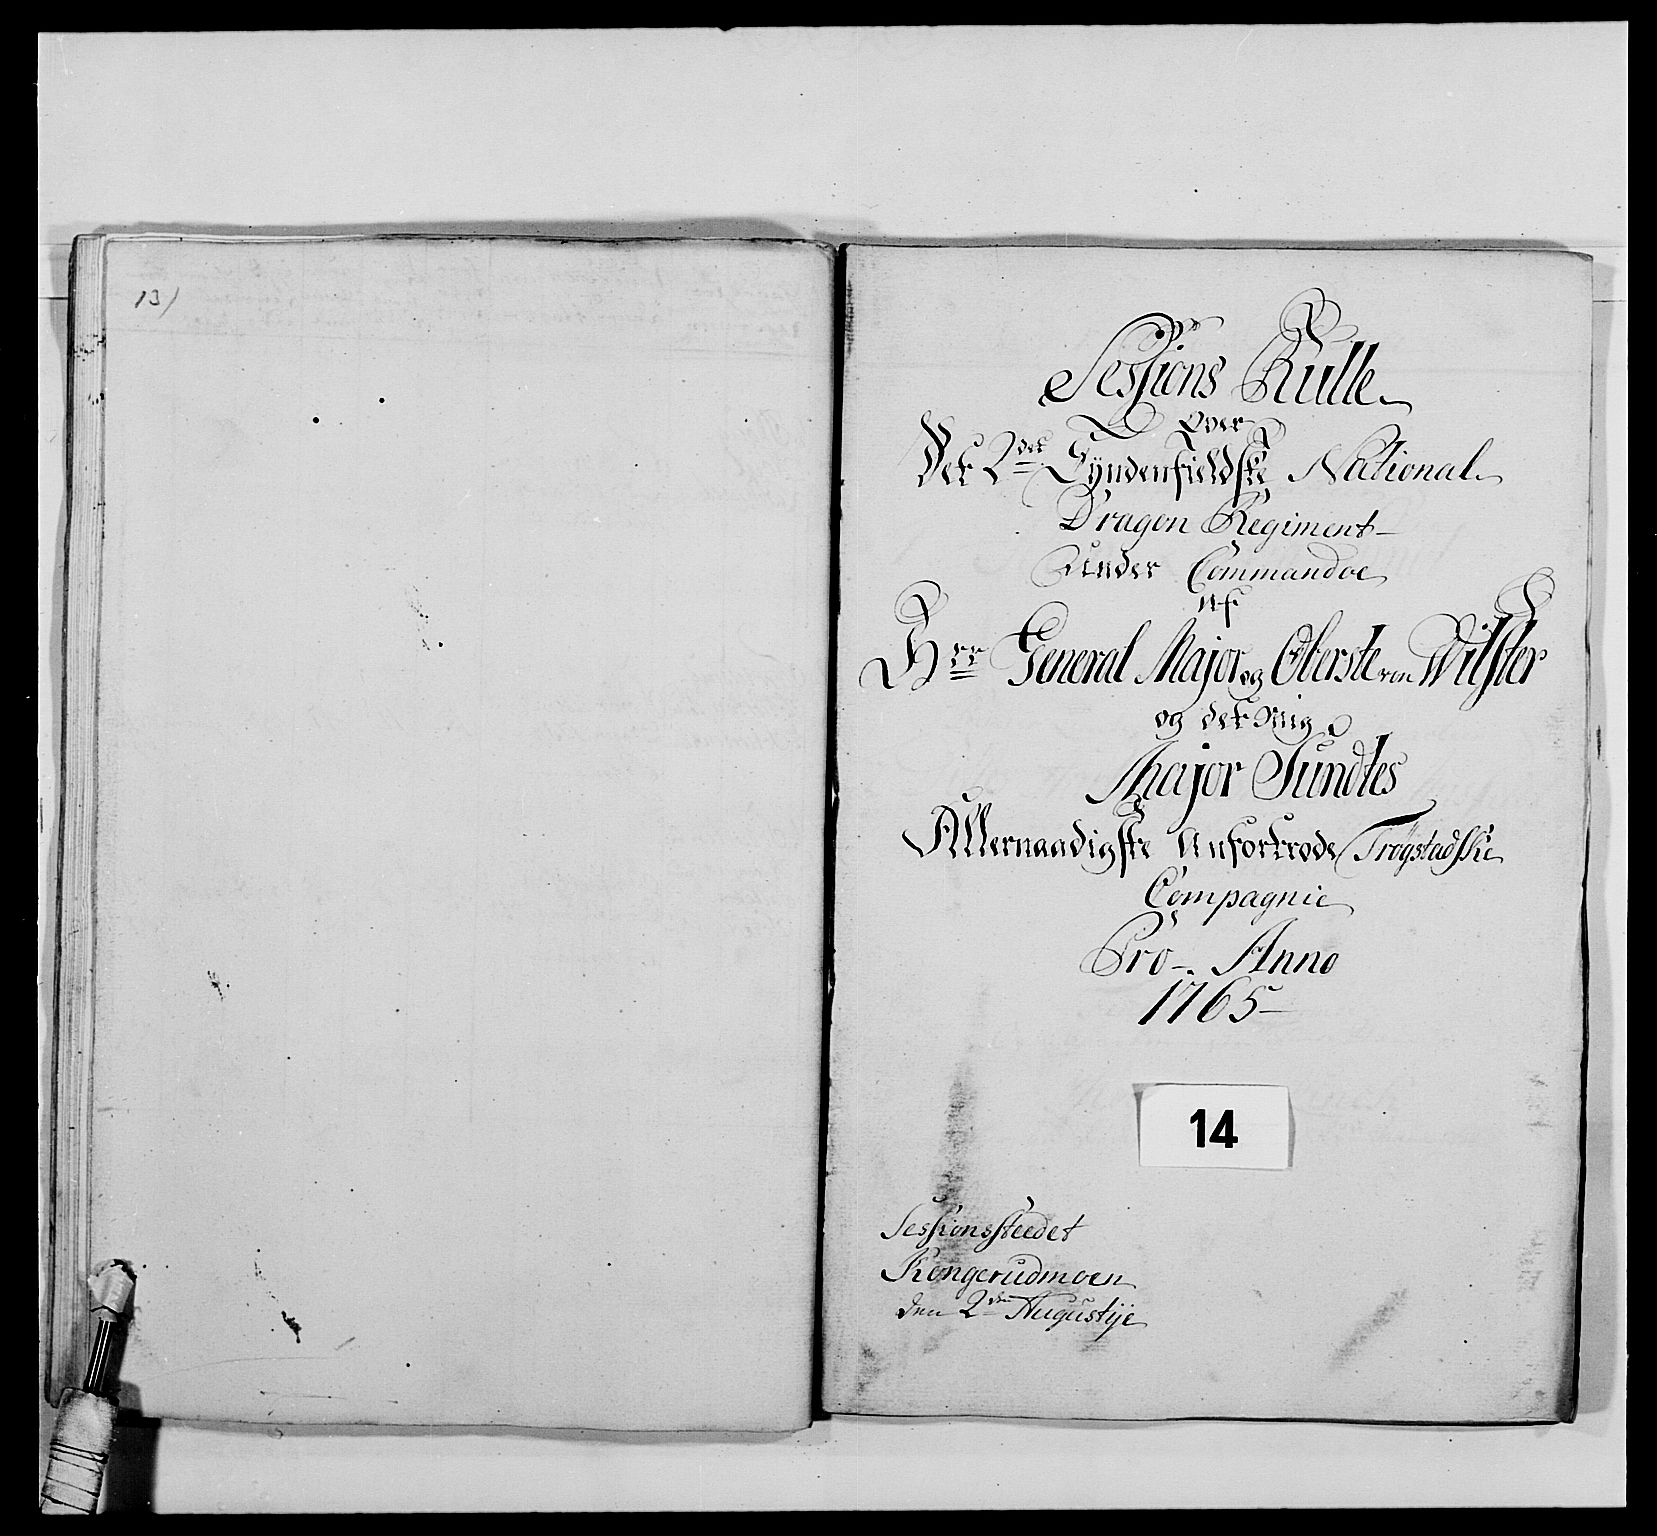 13)
Sessions Rulle
Over
Det 2det Syndenfieldske National
Dragon Regiment
Under Commandoe
Af
Hrr General Major og Oberste von Wilster
og det Mig
Major Sundtes
Allernaadigste Anfortrode Trøgstadske
Compagnie
Pro Anno
1765
14
Sessionssteedet
Kongerudmoen
den 2den Augustÿe